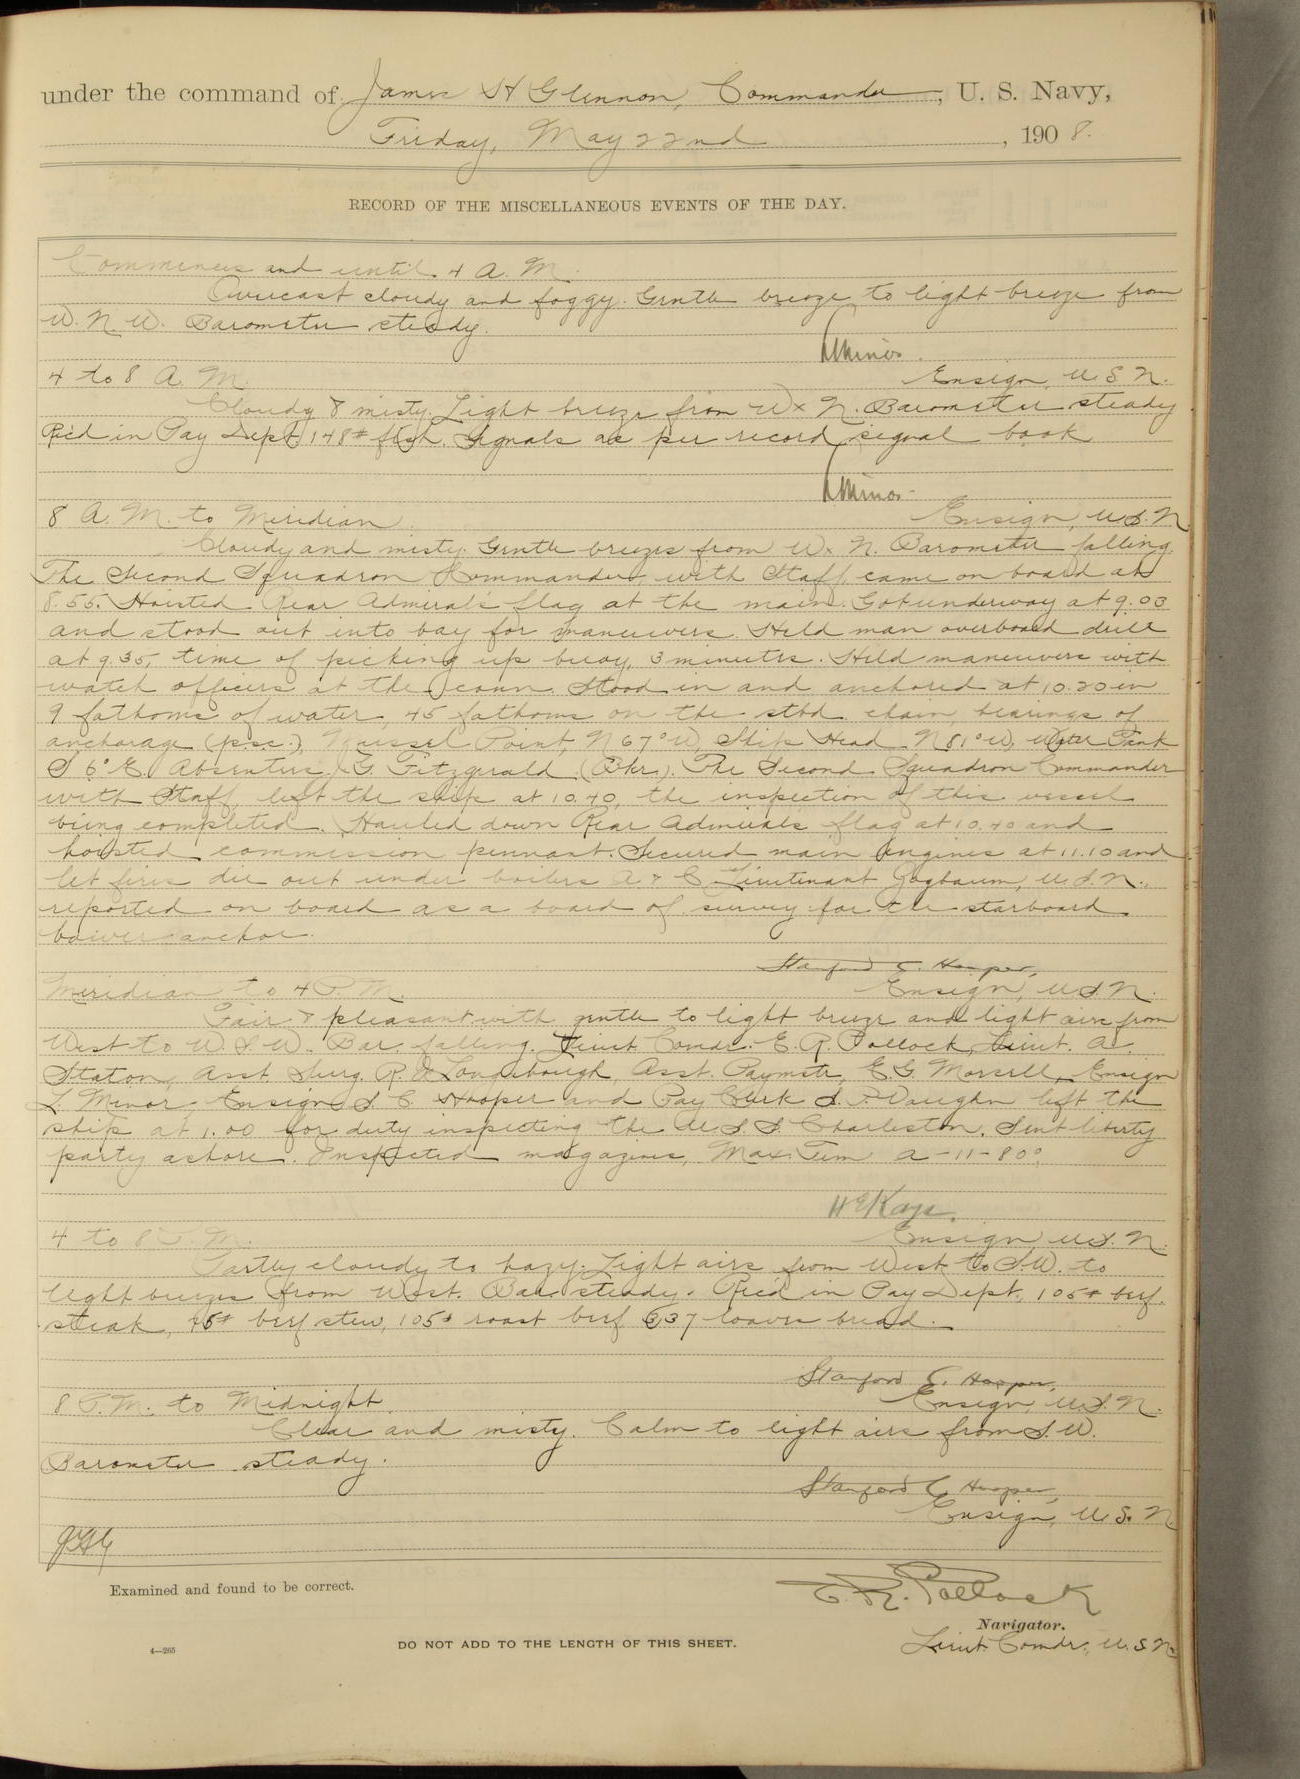 under the command of James H Glennon, Commander, U. S. Navy,
Friday, May 22nd, 1908.
RECORD OF THE MISCELLANEOUS EVENTS OF THE DAY.
Commences and until 4 A. M.
Overcast cloudy and foggy. Gentle breeze to light breeze from
W. N. W. Barometer steady.
L Minor
4 to 8 A. M. Ensign, U. S. N.
Cloudy & misty. Light breeze from W x N. Barometer steady
Rec'd in Pay Dept. 148# fish. Signals as per record signal book
L Minor
8 A. M. to Meridian. Ensign, U. S. N.
Cloudy and misty. Gentle breezes from W x N. Barometer falling.
The Second Squadron Commander with Staff, came on board at
8.55. Hoisted Rear Admiral's flag at the main. Got underway at 9.03
and stood out into bay for maneuvers. Held man overboard drill
at 9.35, time of picking up buoy, 3 minutes. Held maneuvers with
watch officers at the conn. Stood in and anchored at 10.20 in
9 fathoms of water, 45 fathoms on the stbd chain, bearings of
anchorage (p.s.c.), Mussel Point, N 67° W, Ship Head N 81° W, Water Tank
S 6° E. Absentees, G. Fitzgerald (Bkr). The Second Squadron Commander
with Staff, left the ship at 10.40, the inspection of this vessel
being completed. Hauled down Rear Admirals flag at 10.40 and
hoisted commission pennant. Secured main engines at 11.10 and
let fires die out under boilers A & C Lieutenant Zogbaum, U. S. N.,
reported on board as a board of survey for the starboard
bower anchor.
Stanford C. Hooper,
Meridian to 4 P. M. Ensign, U. S. N.
Fair & pleasant with gentle to light breeze and light airs from
West to W. S. W. Bar. falling. Lieut. Comdr. E. R. Pollock, Lieut. A.
Staton, Asst. Surg. R. J. Longabough, Asst. Paymstr. E. G. Morsell, Ensign
L. Minor, Ensign S. C. Hooper and Pay Clerk S. P. Vaughn left the
ship at 1.00 for duty inspecting the U. S. S. Charleston. Sent liberty
party ashore. Inspected magazines, Max. Tem A-11-80°.
H E Kays.
4 to 8 P. M. Ensign U. S. N.
Partly cloudy to hazy. Light airs from West to S. W. to
light breezes from West. Bar steady. Rec'd in Pay Dept. 105# beef
steak, 45# beef stew, 105# roast beef 337 loaves bread.
Stanford C. Hooper,
8 P. M. to Midnight Ensign, U. S. N.
Clear and misty. Calm to light airs from S. W.
Barometer steady.
Stanford C Hooper,
Ensign, U. S. N.
JHG
Examined and found to be correct.
E. R. Pollock
Navigator.
Lieut. Comdr., U. S. N.
4—265
DO NOT ADD TO THE LENGTH OF THIS SHEET.